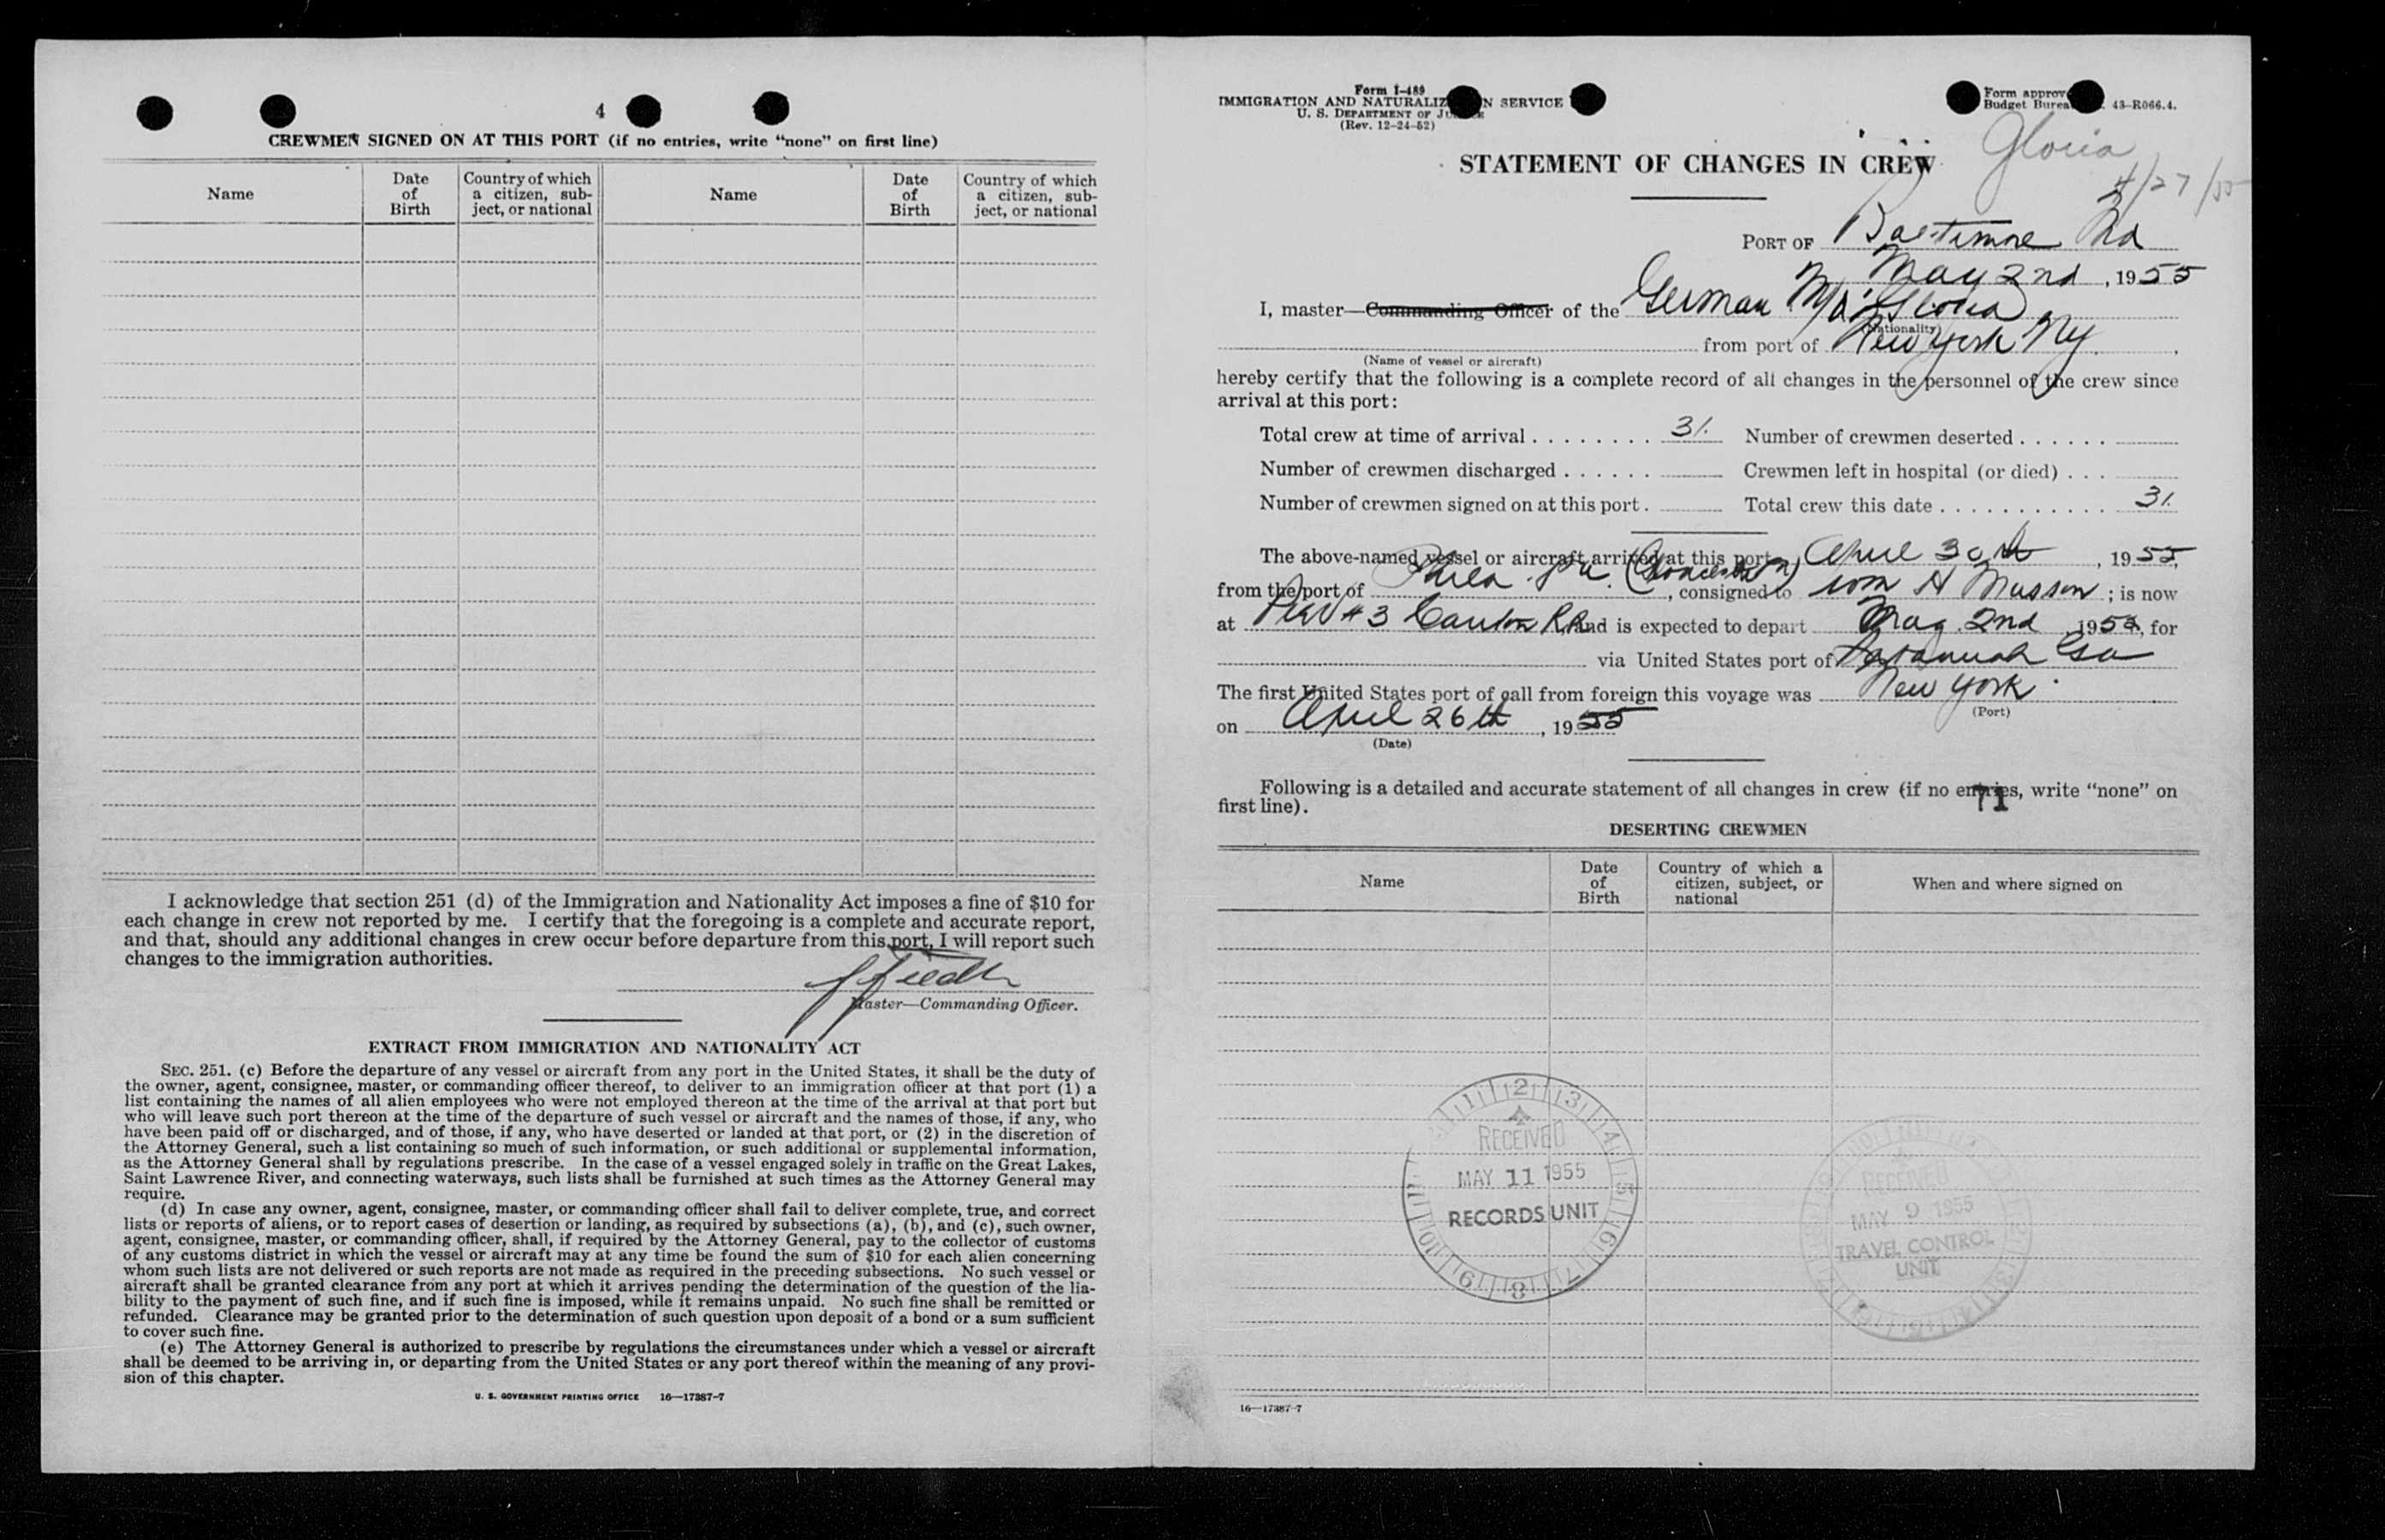 4
CREWMEN SIGNED ON AT THIS PORT (if no entries, write “none” on first line)
Name
Date of Birth
Country of which a citizen, sub-ject, or national
Name
Date of Birth
Country of which a citizen, sub-ject, or national
I acknowledge that section 251 (d) of the Immigration and Nationality Act imposes a fine of $10 for
each change in crew not reported by me. I certify that the foregoing is a complete and accurate report,
and that, should any additional changes in crew occur before departure from this port, I will report such
changes to the immigration authorities.
Master—Commanding Officer.
EXTRACT FROM IMMIGRATION AND NATIONALITY ACT
SEC. 251. (c) Before the departure of any vessel or aircraft from any port in the United States, it shall be the duty of
the owner, agent, consignee, master, or commanding officer thereof, to deliver to an immigration officer at that port (1) a
list containing the names of all alien employees who were not employed thereon at the time of the arrival at that port but
who will leave such port thereon at the time of the departure of such vessel or aircraft and the names of those, if any, who
have been paid off or discharged, and of those, if any, who have deserted or landed at that port, or (2) in the discretion of
the Attorney General, such a list containing so much of such information, or such additional or supplemental information,
as the Attorney General shall by regulations prescribe. In the case of a vessel engaged solely in traffic on the Great Lakes,
Saint Lawrence River, and connecting waterways, such lists shall be furnished at such times as the Attorney General may
require.
(d) In case any owner, agent, consignee, master, or commanding officer shall fail to deliver complete, true, and correct
lists or reports of aliens, or to report cases of desertion or landing, as required by subsections (a), (b), and (c), such owner,
agent, consignee, master, or commanding officer, shall, if required by the Attorney General, pay to the collector of customs
of any customs district in which the vessel or aircraft may at any time be found the sum of $10 for each alien concerning
whom such lists are not delivered or such reports are not made as required in the preceding subsections. No such vessel or
aircraft shall be granted clearance from any port at which it arrives pending the determination of the question of the lia-
bility to the payment of such fine, and if such fine is imposed, while it remains unpaid. No such fine shall be remitted or
refunded. Clearance may be granted prior to the determination of such question upon deposit of a bond or a sum sufficient
to cover such fine.
(e) The Attorney General is authorized to prescribe by regulations the circumstances under which a vessel or aircraft
shall be deemed to be arriving in, or departing from the United States or any port thereof within the meaning of any provi-
sion of this chapter.
U. S. GOVERNMENT PRINTING OFFICE 16—17387-7
Form I-489
IMMIGRATION AND NATURALIZ N SERVICE
U. S. DEPARTMENT OF JU
(Rev. 12-24-52)
Form approv
Budget Burea 43-R066.4.
Gloria
4/27/55
STATEMENT OF CHANGES IN CREW
PORT OF Baltimore Md
May 2nd, 1955
I, master—Commanding Officer of the German M/S Gloria
(Nationality)
from port of New York NY
(Name of vessel or aircraft)
hereby certify that the following is a complete record of all changes in the personnel of the crew since
arrival at this port:
Total crew at time of arrival . . . . . . . . 31. Number of crewmen deserted . . . . . .
Number of crewmen discharged . . . . . . Crewmen left in hospital (or died) . . .
Number of crewmen signed on at this port . Total crew this date . . . . . . . . . . . 31.
The above-named vessel or aircraft arrived at this port April 30th, 1955,
from the port of Phila. Pa. (Gloucester), consigned to Wm H Masson; is now
at Pier #3 Canton RR and is expected to depart May 2nd 1955, for
via United States port of Savannah Ga
The first United States port of call from foreign this voyage was New York.
(Port)
on April 26th, 1955
(Date)
Following is a detailed and accurate statement of all changes in crew (if no entries, write “none” on
first line).
71
DESERTING CREWMEN
Name
Date of Birth
Country of which a citizen, subject, or national
When and where signed on
RECEIVED
MAY 11 1955
RECORDS UNIT
RECEIVED
MAY 9 1955
TRAVEL CONTROL
UNIT
16—17387-7